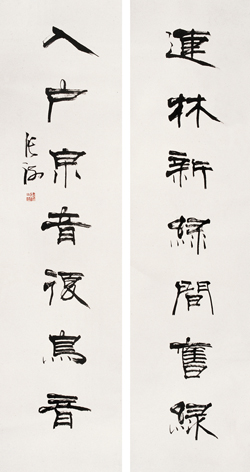 連林新綠間舊綠
入户泉音復鳥音
张海